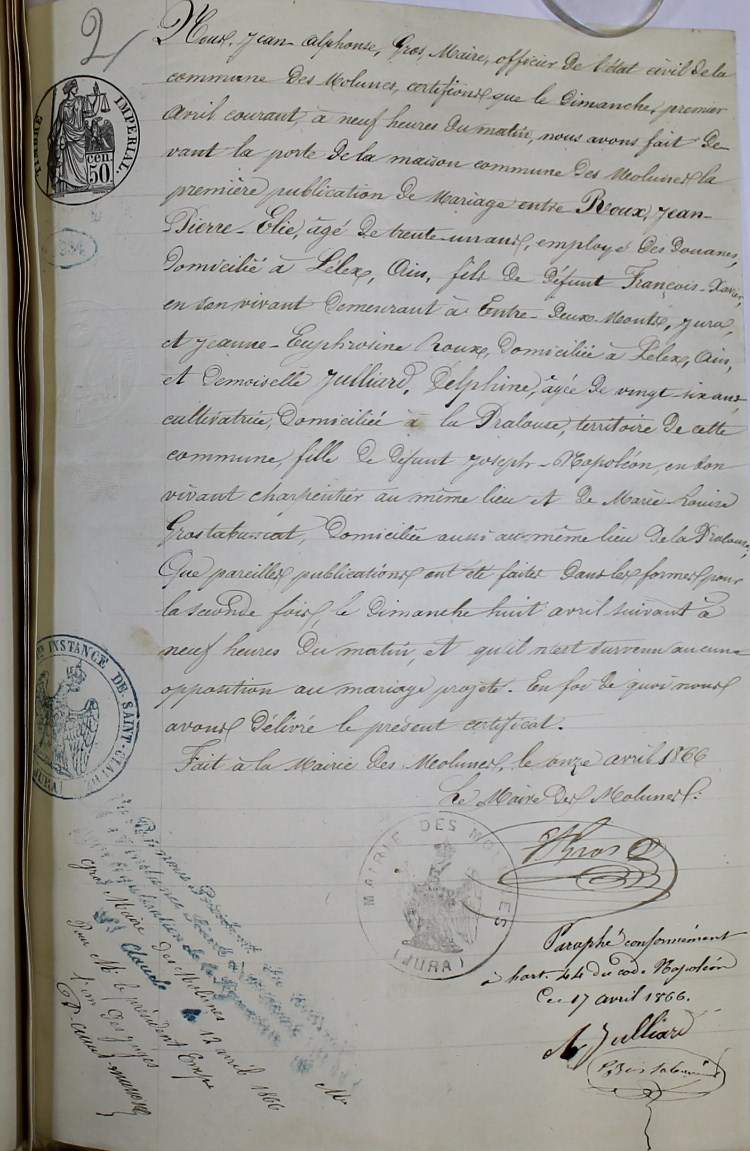 2
TIMBRE IMPERIAL.
50 cen
Nous, Jean-Alphonse, Gros, Maire, officier de l'état civil de la
commune des Molunes, certifions que le Dimanche, premier
avril courant, à neuf heures du matin, nous avons fait de
vant la porte de la maison commune des Molunes la
première publication de Mariage entre Roux, Jean-
Pierre-Elie, âgé de trente-un ans, employé des Douanes,
domicilié à Lélex, Ain, fils de défunt François-Xavier,
en son vivant demeurant à Entre-Deux-Monts, Jura,
et Jeanne-Euphrosine Roux, domiciliée à Lélex, Ain,
et Demoiselle Julliard, Delphine, âgée de vingt-six ans,
cultivatrice, domiciliée à la Pralouse, territoire de cette
commune, fille de défunt Joseph-Napoléon, en son
vivant charpentier au même lieu et de Marie-Louise
Grostabussiat, domiciliée aussi au même lieu de la Pralouse,
Que pareilles publications ont été faites dans les formes pour
la seconde fois, le Dimanche huit avril suivant à
neuf heures du matin, et qu'il n'est survenu aucune
opposition au mariage projeté. En foi de quoi nous
avons délivré le présent certificat.
Fait à la Mairie des Molunes, le onze avril 1866
Le Maire des Molunes.
INSTANCE DE SAINT-CLAUDE
(JURA)
MAIRIE DES MOLUNES
(JURA)
Gros
Paraphé conformément
à l'art. 44 du code Napoléon
Ce 17 avril 1866.
Julliard
Vu par nous Président du
de la signature de M
Gros Maire des Molunes
St Claude le 12 avril 1866
Pour M. le président